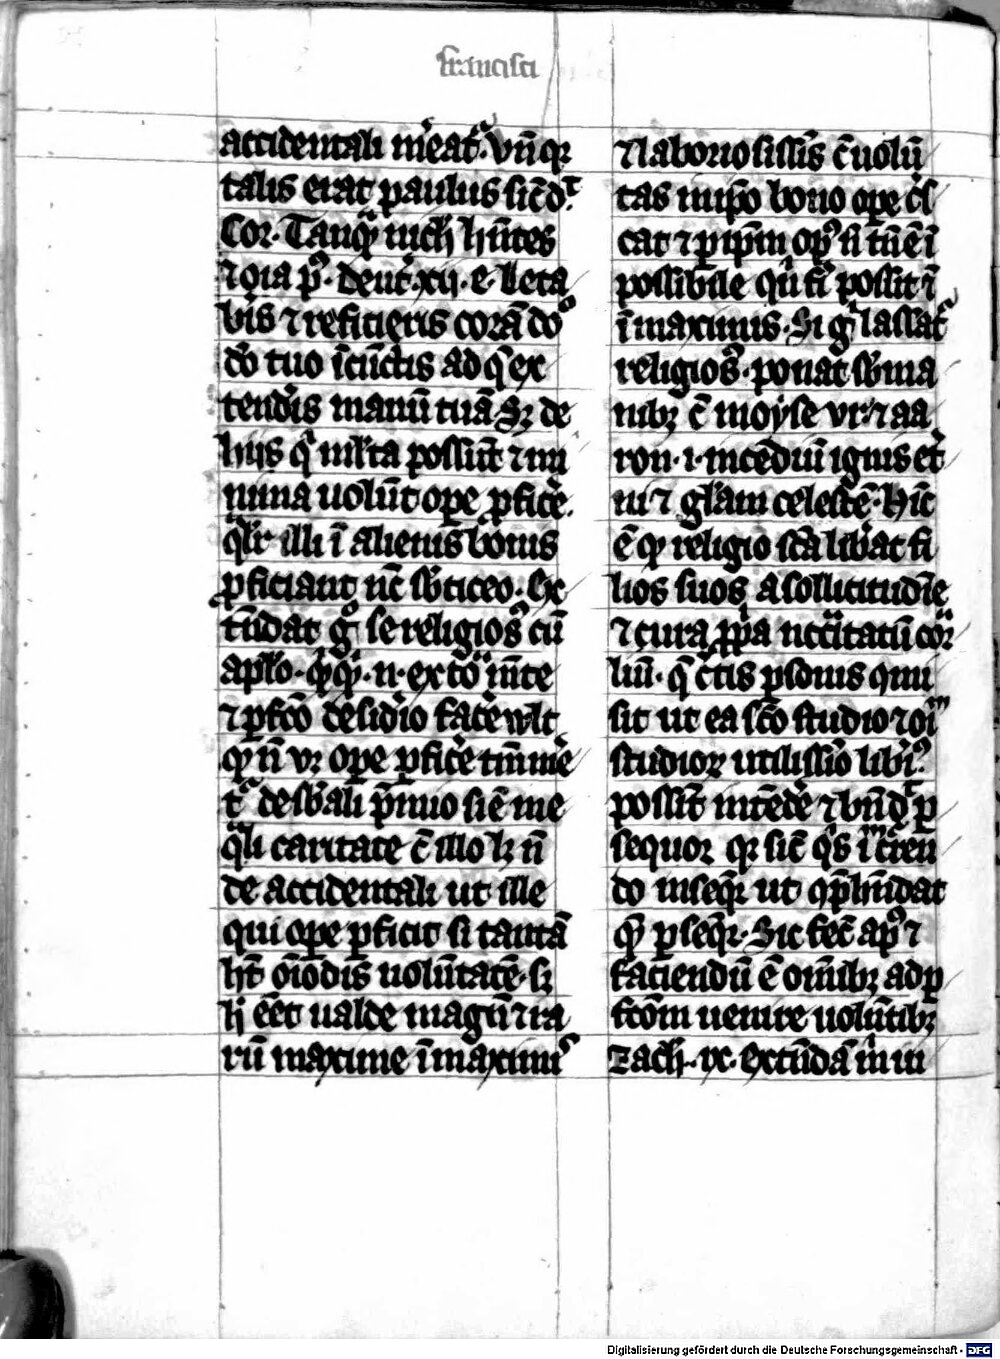 francisci
accidentali m̄eat᷑. Vn̄ qr
talis erat paulus sic̄ d͛.
Cor. Tanq̄ nich̄ hn̄tes
⁊ oīa p͛. deut͛. xij. e. Leta
b̄is ⁊ reficieris corā dō
dō tuo ī cūctis ad q̄ ex
tend͛is manū tuā. Sꝫ de
hijs q̄ ml̄ta possūt ⁊ im̄
mina uolūt ope ꝓfic͛e.
q̄lr̄ illi ī alienis bonis
ꝓficiant nc̄ sb̄ticeo. Ex
tn̄dat g͛ se religios͛ cū
aplō. ꝙ̄q̄. n. ex toͣ mn̄te
⁊ pfcō desid͛io fac͛e wlt
ꝙ n̄ vꝛ ope ꝑfic͛e tm̄ in̄e
tͣ de sb̄ali p̄mio siē me
q̄li caritate c̄ illo lꝫ n̄
de accidentali ut ille
qui ope ꝑficit si tantā
hꝫ oīodis uolūtatē. sꝫ
h̄ eēt ualde magnū ⁊ ra
rū maxime ī maximis
⁊ laboriosissīs c̄ uolū
tas in ip̄o bono ope c͛s
cat ⁊ ꝑ ip̄m op͛ n̄ tn̄ ē ī
possibile qn̄ fi͛ possit ⁊
ī maximis. Si g͛ lassat᷑
religios͛. ponat sb̄ ma
nibꝫ c̄ moyse vr ⁊ aa
ron. i. incēdiū ignis et͛
ni ⁊ gl̄am celestē. Hīc
ē ꝙ religio sc̄a lib͛at fi
lios suos a sollicitudīe
⁊ cura ꝓpͥa nccītatū cor
liū. q̄ c͛tis ꝑsonis qm̄
sit ut ea sc̄o studio ⁊ oīͫ
studioꝝ utilissīo lib͛iͥ͛.
possīt intēd͛e ⁊ bn̄ dͭ ꝑ
sequor qr sic̄ q̄s īͫ c͛rēn
do inseqr̄ ut ꝯp̄hn̄dat
ꝙ̄ ꝑseqr̄. Sic fec̄ ap͛ ⁊
faciendū ē oīnibꝫ ad ꝑ
fcōm uenire uoln̄tibꝫ
Zach. ix. Extn̄dā m̄ in
Digitalisierung gefördert durch die Deutsche Forschungsgemeinschaft - DFG